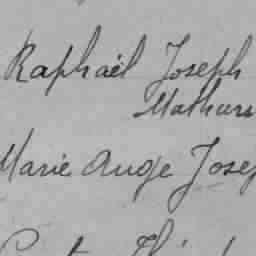 Raphaël Joseph
Mathurin
Marie Ange Josep